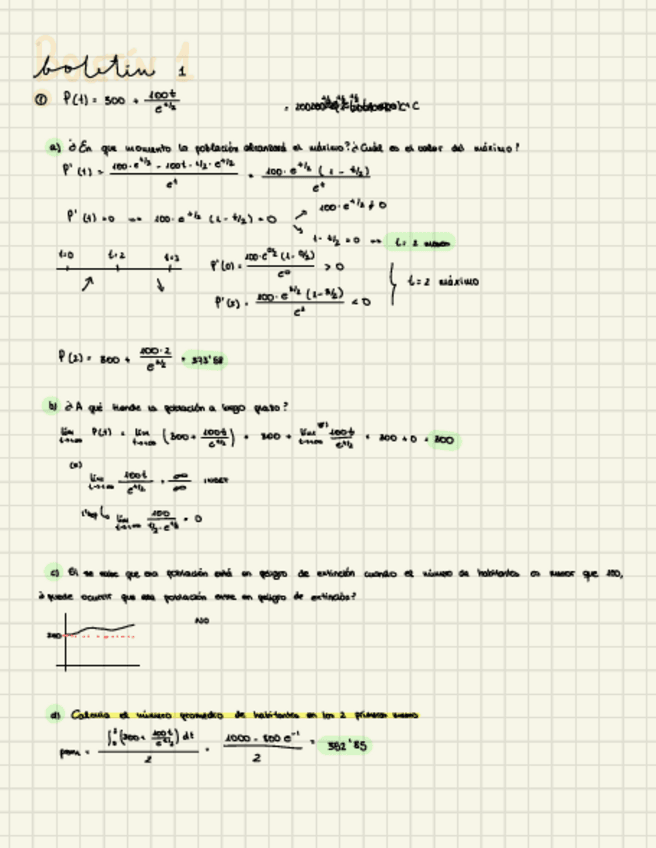 boletín 1
① P(t) = 300 + 100t / e^(t/2)
a) ¿En que momento la población alcanzará el máximo? ¿Cuál es el valor del máximo?
P'(t) = (100·e^(t/2) - 100t·1/2·e^(t/2)) / e^t = (100·e^(t/2) (1 - t/2)) / e^t
P'(t) = 0 → 100·e^(t/2) (1 - t/2) = 0 ↗ 100·e^(t/2) ≠ 0
↘ 1 - t/2 = 0 → t = 2
t=0 t=2 t=3
P'(0) = (100·e^(0/2) (1 - 0/2)) / e^0 > 0
P'(3) = (100·e^(3/2) (1 - 3/2)) / e^3 < 0
t = 2 máximo
P(2) = 300 + 100·2 / e^(2/2) = 373'58
b) ¿A qué tiende la población a largo plazo?
lím t→∞ P(t) = lím t→∞ (300 + 100t / e^(t/2)) = 300 + lím t→∞ 100t / e^(t/2) = 300 + 0 = 300
lím t→∞ 100t / e^(t/2) = ∞/∞ INDET
L'Hop lím t→∞ 100 / (1/2·e^(t/2)) = 0
c) Si se sabe que esa población está en peligro de extinción cuando el número de habitantes es menor que 100,
¿puede ocurrir que esa población entre en peligro de extinción?
NO
300
d) Calcula el número promedio de habitantes en los 2 primeros
prom = ∫₀² (300 + 100t / e^(t/2)) dt / 2 = (1000 - 800 e^-1) / 2 = 352'85